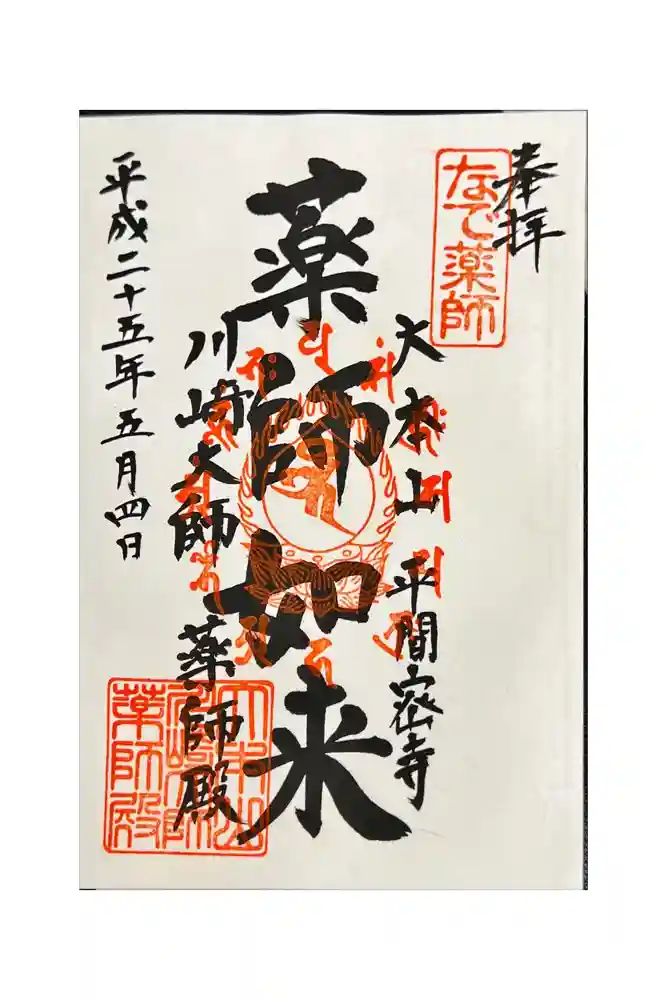 奉拝
なで薬師
大本山 平間密寺
薬師如来
川崎大師 薬師殿
大本山
川崎大師
薬師殿
平成二十五年五月四日